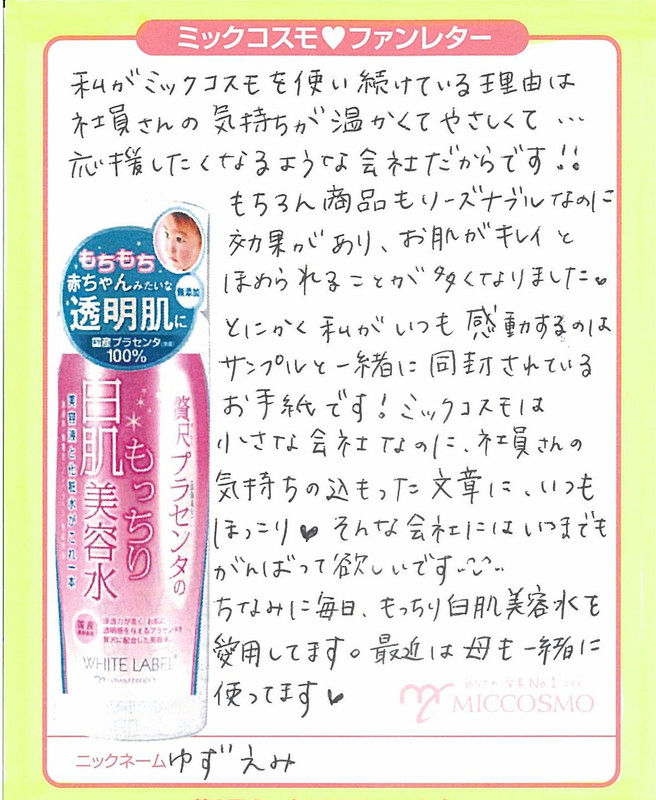 ミックコスモ♥ファンレター
私がミックコスモを使い続けている理由は
社員さんの気持ちが温かくてやさしくて…
応援したくなるような会社だからです!!
もちろん商品もリーズナブルなのに
効果があり、お肌がキレイと
ほめられることが多くなりました♥
とにかく私がいつも感動するのは
サンプルと一緒に同封されている
お手紙です!ミックコスモは
小さな会社なのに、社員さんの
気持ちの込もった文章に、いつも
ほっこり♥そんな会社にはいつまでも
がんばって欲しいです
ちなみに毎日、もっちり白肌美容水を
愛用してます。最近は母も一緒に
使ってます♥
もちもち
赤ちゃんみたいな
無添加
透明肌に
国産プラセンタ
100%
贅沢プラセンタの
もっちり
白肌美容水
美容液と化粧水がこれ一本
国産
浸透力が高く、お肌に
透明感を与えるプラセンタを
贅沢に配合した美容水。
WHITE LABEL
MICCOSMO
ニックネーム ゆずえみ